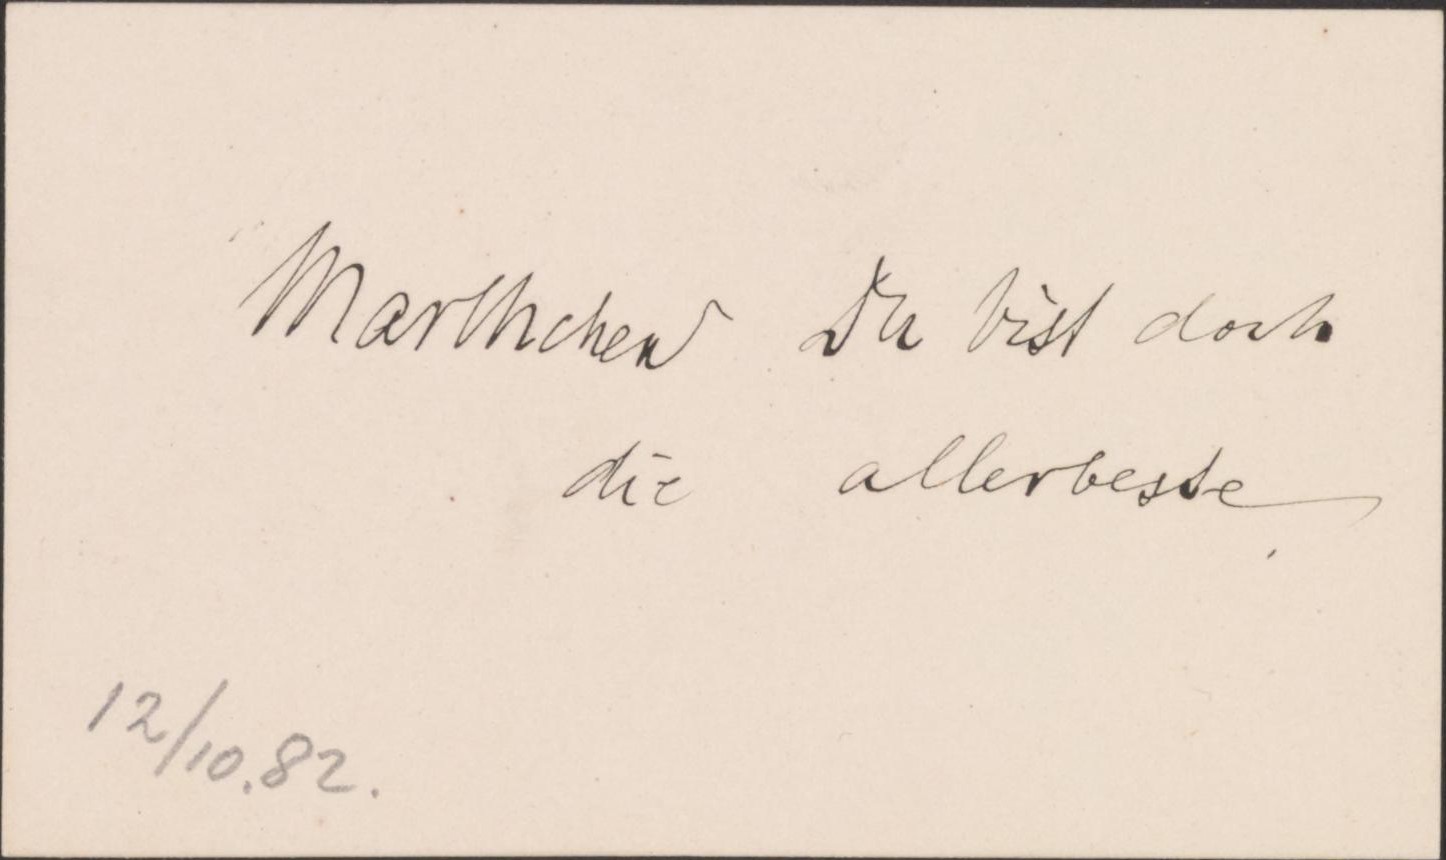 Marthchen Du bist doch
die allerbeste
12/10.82.